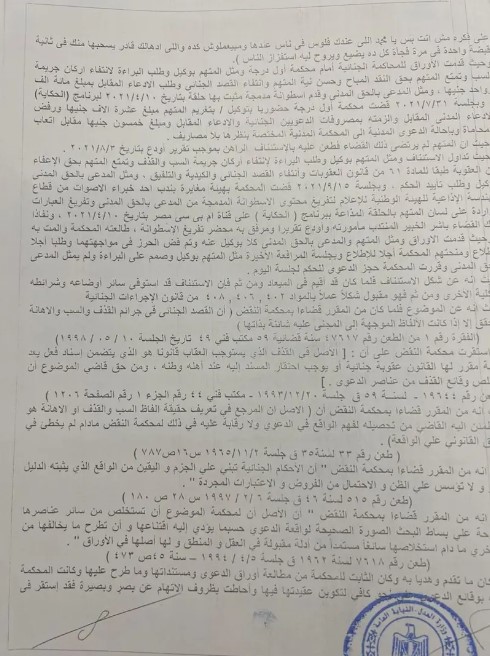 على فكره مش انت بس يا محمد اللى عندك فلوس فى ناس عندها ومبيعملوش كده واللى ادهالك قادر يسحبها منك فى ثانية
واحدة فى مرة فجأة كل ده يضيع ويروح ليه استفزاز الناس ).
وحيث قدمت الأوراق للمحاكمة الجنائية أمام محكمة أول درجة ومثل المتهم بوكيل وطلب البراءة لانتفاء اركان جريمة
السب وتمتع المتهم بحق النقد المباح وحسن نية المتهم وانتفاء القصد الجنائى وطلب الادعاء المقابل بمبلغ مائة الف
وواحد جنيها ، ومثل المدعى بالحق المدنى وقدم اسطوانة مدمجة مثبت بها حلقة بتاريخ ٢٠٢١/٤/١٠ لبرنامج (الحكاية)
وبجلسة ٢٠٢١/٧/٣١ قضت محكمة أول درجة حضوريا بتوكيل / بتغريم المتهم مبلغ عشرة الاف جنيها ورفض
الادعاء المدنى المقابل والزمته بمصروفات الدعويين الجنائية والادعاء المقابل ومبلغ خمسون جنيها مقابل اتعاب
المحاماة وباحالة الدعوى المدنية الى المحكمة المدنية المختصة بنظرها بلا مصاريف .
وحيث ان المتهم لم يرتضى ذلك القضاء فطعن عليه بالاستئناف الراهن بموجب تقرير أودع بتاريخ ٢٠٢١/٨/٢ .
وحيث تداول الاستئناف ومثل المتهم بوكيل وطلب البراءة لانتفاء اركان جريمة السب والقذف وتمتع المتهم بحق الإعفاء
من العقوبة طبقا للمادة ٦١ من قانون العقوبات وانتفاء القصد الجنائى والكيدية والتلفيق ، ومثل المدعى بالحق المدنى
وكيل وطلب تاييد الحكم . وبجلسة ٢٠٢١/٩/١٥ قضت المحكمة بهيئة مغايرة بندب احد خبراء الاصوات من قطاع
هندسة الاذاعية للهيئة الوطنية للإعلام لتفريغ محتوى الاسطوانة المدمجة من المدعى بالحق المدنى وتفريغ العبارات
واردة على لسان المتهم بالحلقة المذاعة ببرنامج ( الحكاية ) على قناة ام بى سى مصر بتاريخ ٢٠٢١/٤/١٠ ، ونفاذا
القضاء باشر الخبير المنتدب مأموريته وأودع تقريرا ومرفق به محضر تفريغ الاسطوانة ، طالعته المحكمة والمت به
وحيث قدمت الأوراق ومثل المتهم والمدعى بالحق المدنى كلا بوكيل عنه وتم فض الحرز فى مواجهتهما وطلبا اجلا
للاطلاع ومنحتهم المحكمة أجلا للإطلاع وبجلسة المرافعة الاخيرة مثل المتهم بوكيل وصمم على البراءة ولم يمثل المدعى
بالحق المدنى وقررت المحكمة حجز الدعوى للحكم لجلسة اليوم .
وحيث إنه عن شكل الاستئناف فلما كان قد اقيم فى الميعاد ومن ثم فإن الاستئناف قد استوفى سائر أوضاعه وشرائطه
الشكلية الاخرى ومن ثم فهو مقبول شكلاً عملاً بالمواد ٤٠٢ ، ٤٠٦ ، ٤٠٨ من قانون الإجراءات الجنائية
وحيث إنه عن الموضوع فلما كان من المقرر قضاءا بمحكمة النقض ( أن القصد الجنائى فى جرائم القذف والسب والاهانة
يتحقق إلا إذا كانت الألفاظ الموجهة إلى المجنى عليه شائنة بذاتها )
(الفقرة رقم ١ من الطعن رقم ٤٧٦١٧ لسنة قضائية ٥٩ مكتب فنى ٤٩ تاريخ الجلسة ١٠ / ٠٥ / ١٩٩٨ )
استقرت محكمة النقض على أن : [ الأصل فى القذف الذى يستوجب العقاب قانونا هو الذى يتضمن إسناد فعل يعد
جريمة مقرر لها القانون عقوبة جنائية أو يوجب احتقار المسند إليه عند أهله وطنه ، ومن حق قاضى الموضوع أن
يستخلص وقائع القذف من عناصر الدعوى . ]
طعن رقم ١٩٦٤٤ - لسنة ٥٩ ق جلسة ١٩٩٣/١٢/٢٠ - مكتب فنى ٤٤ رقم الجزء ١ رقم الصفحة ١٢٠٦ )
انه من المقرر قضاءا بمحكمة النقض ان ( الاصل ان المرجع فى تعريف حقيقة الفاظ السب والقذف أو الاهانة هو
يطمئن إليه القاضى من تحصيله لفهم الواقع فى الدعوى ولا رقابة عليه فى ذلك لمحكمة النقض مادام لم يخطئ فى
القانونى على الواقعة ).
( طعن رقم ٣٣ لسنة ٣٥ ق جلسة ١٩٦٥/١١/٢ س١٦ ص٧٨٧)
انه من المقرر قضاءا بمحكمة النقض " أن الأحكام الجنائية تبنى على الجزم و اليقين من الواقع الذى يثبته الدليل
و لا تؤسس على الظن و الاحتمال من الفروض و الاعتبارات المجردة " .
(طعن رقم ٥١٥ لسنة ٤٦ ق جلسة ٦ / ٢ / ١٩٩٧ س ٢٨ ص ١٨٠ )
انه من المقرر قضاءا بمحكمة النقض " أن الأصل أن لمحكمة الموضوع أن تستخلص من سائر عناصرها
على بساط البحث الصورة الصحيحة لواقعة الدعوى حسبما يؤدى إليه اقتناعها و أن تطرح ما يخالفها من
أخرى ما دام استخلاصها سائغاً مستمداً من أدلة مقبولة فى العقل و المنطق و لها أصلها فى الأوراق " .
(طعن رقم ٧٦١٨ لسنة ١٩٦٢ ق جلسة ٤/٥ / ١٩٩٤ – سنة ٤٥ ص ٤٧٣)
كان ما تقدم وهديا به وكان الثابت للمحكمة من مطالعة أوراق الدعوى ومستنداتها وما طرح عليها وكانت المحكمة
بوقائع الدعوى كافى لتكوين عقيدتها فيها وأحاطت بظروف الاتهام عن بصر وبصيرة فقد إستقر فى
وزارة العدل - النيابة العامة